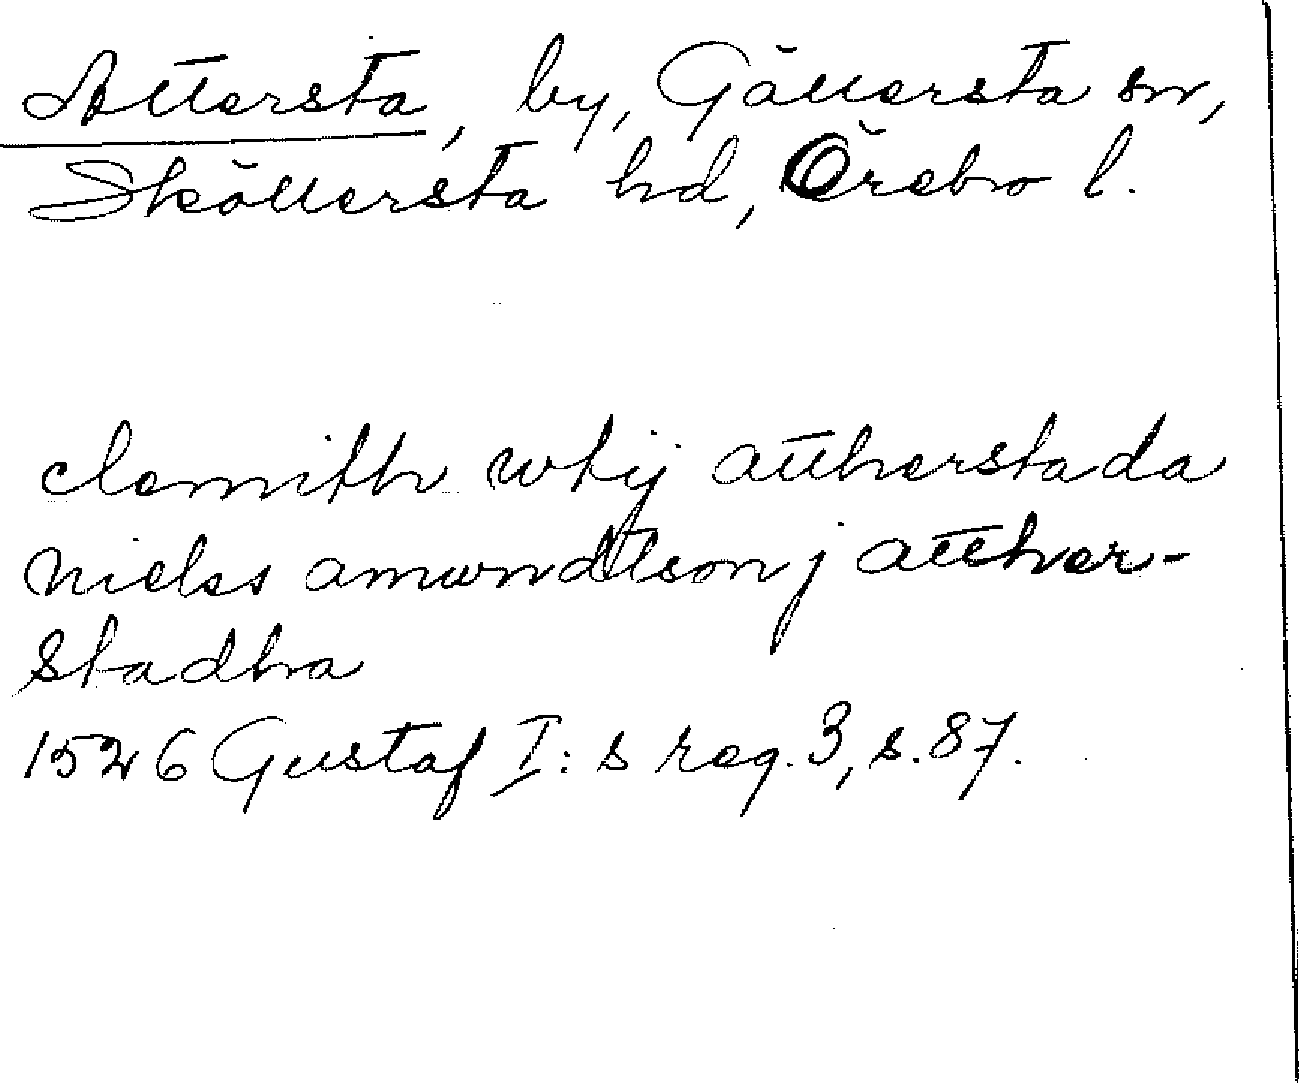 Attersta, by, Gällersta sn,
Sköllersta hd, Örebro l.
clemith wtij attherstada
nielss amundtson j atther-
stadha
1526 Gustaf I:s reg. 3, s. 87.